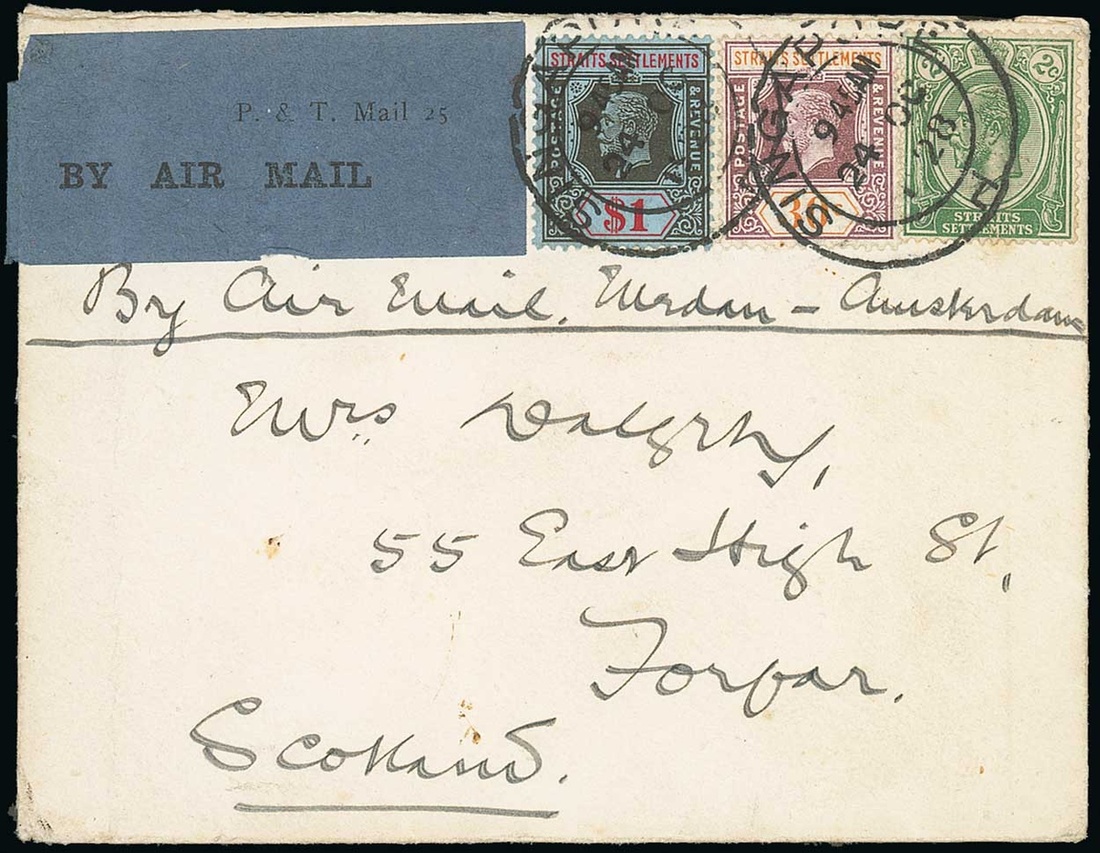 P. & T. Mail 25
BY AIR MAIL
STRAITS SETTLEMENTS
POSTAGE & REVENUE
$1
STRAITS SETTLEMENTS
POSTAGE & REVENUE
2c 2c
STRAITS SETTLEMENTS
SINGAPORE
9 45 AM
24 OC
SINGAPORE
9 45 AM
24 OC
28
By Air Mail, Medan – Amsterdam
Mrs Dalgety,
55 East High St,
Forfar.
Scotland.